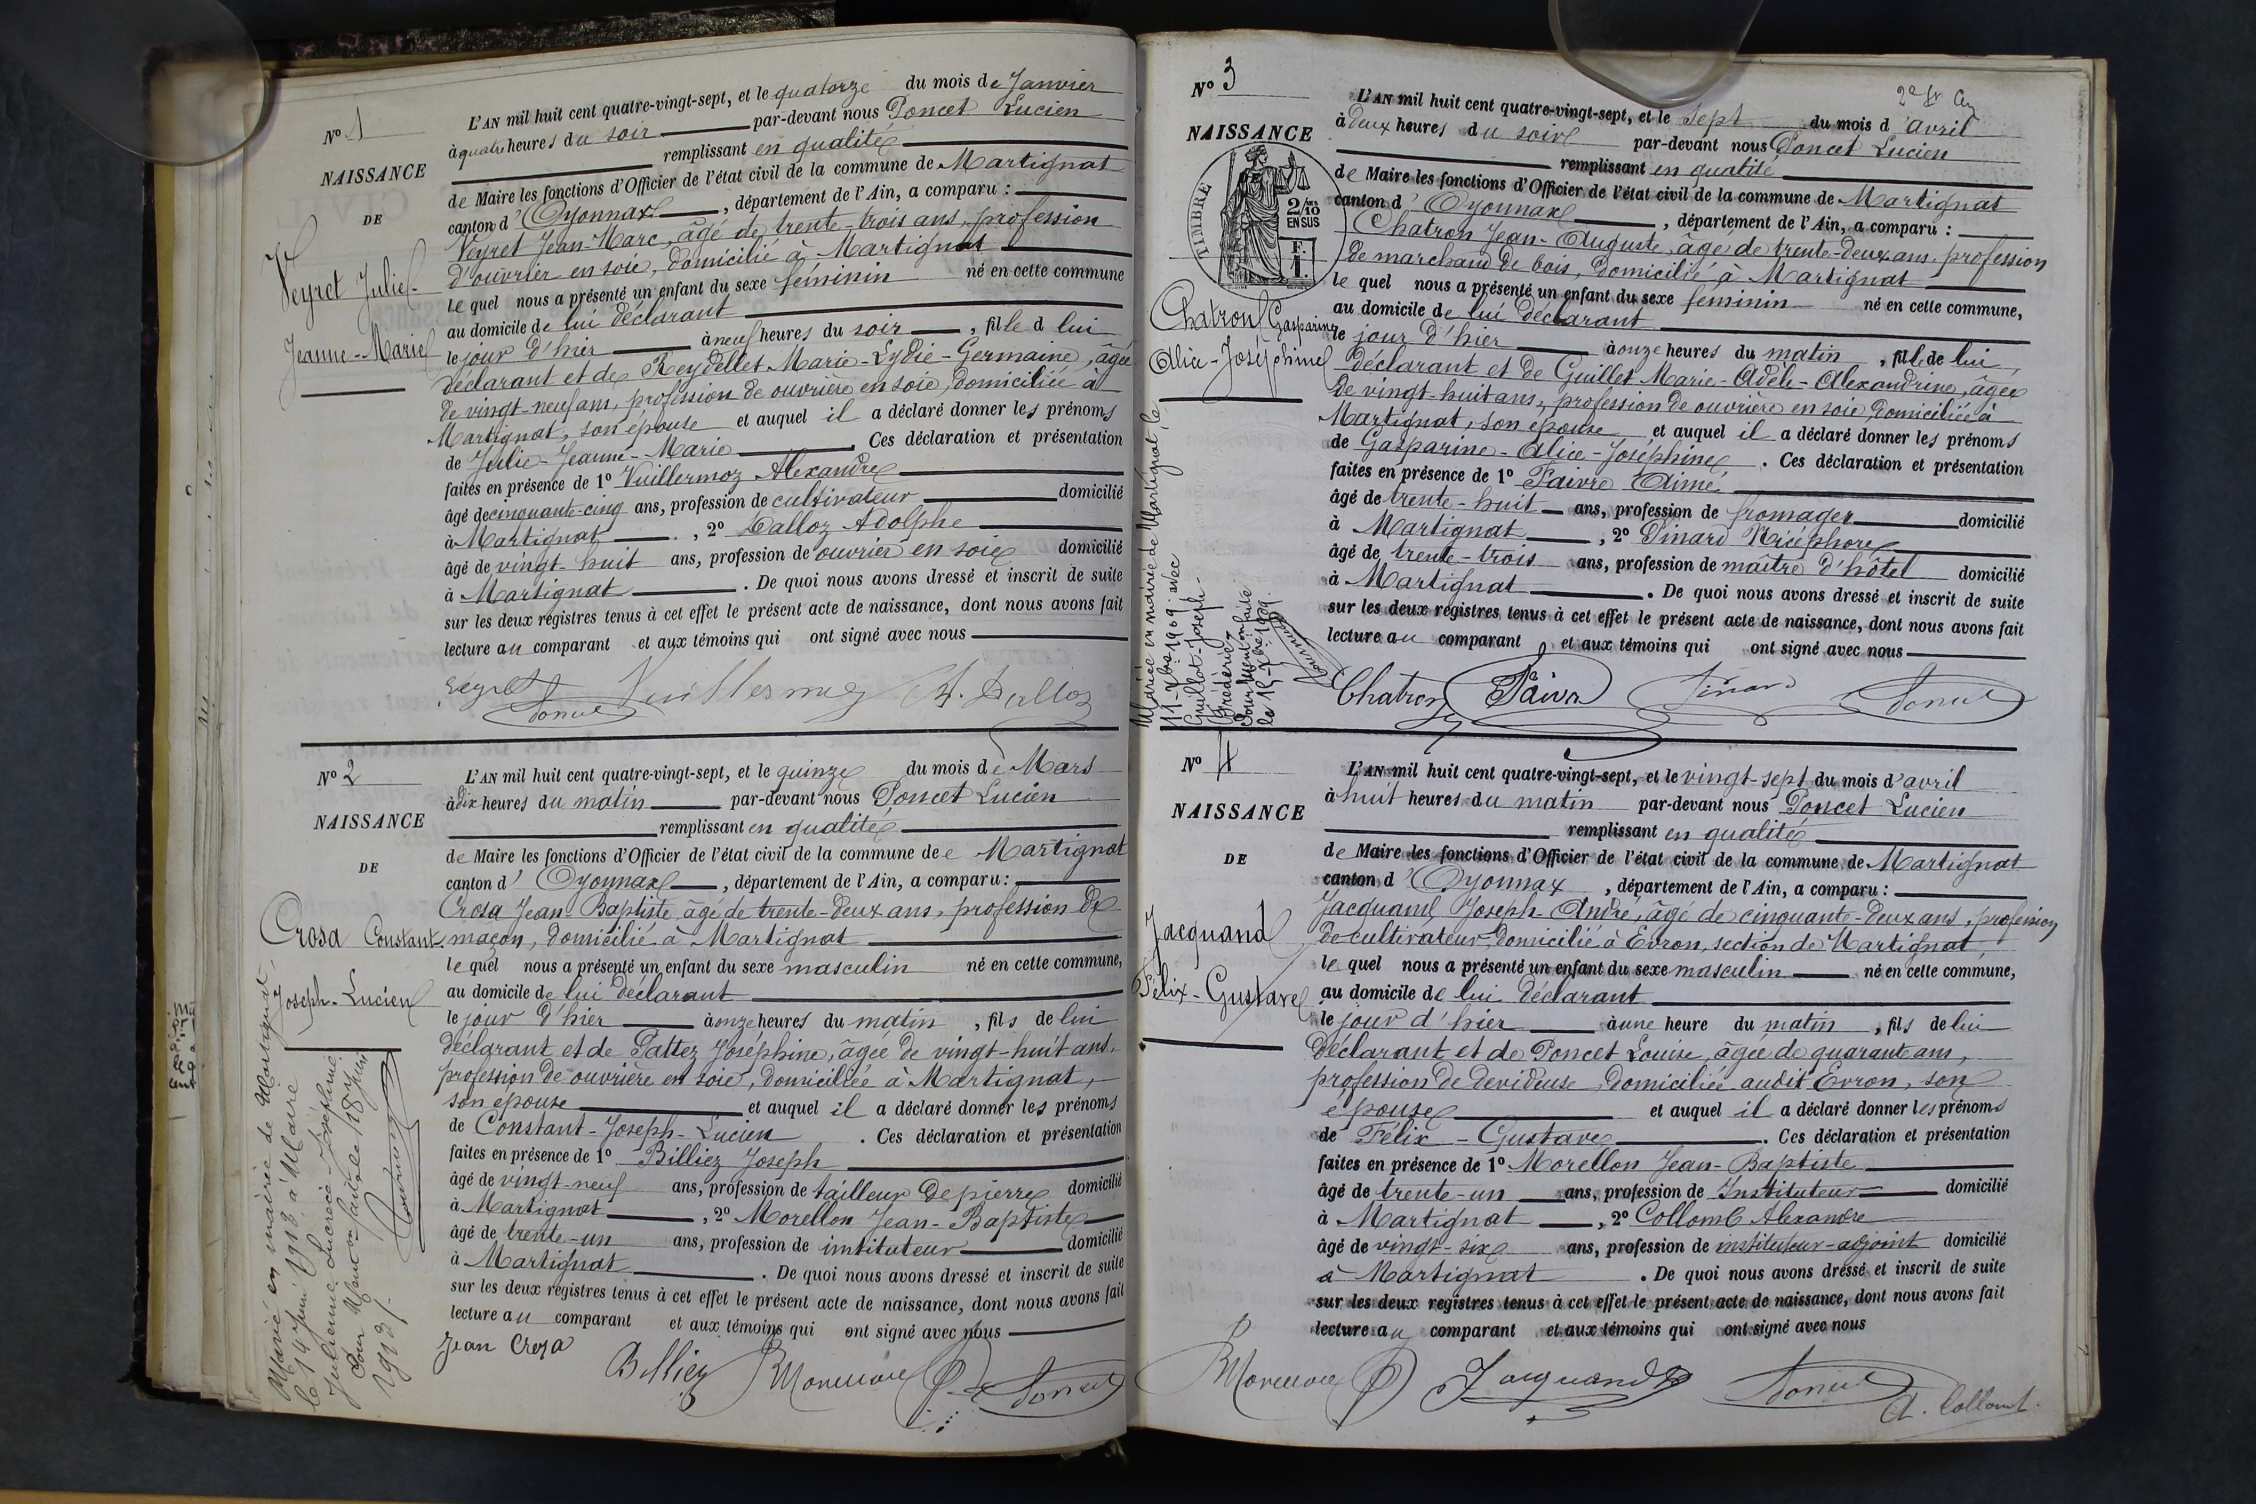 Nº 1
NAISSANCE
DE
Veyret Julie-
Jeanne-Marie
L'AN mil huit cent quatre-vingt-sept, et le quatorze du mois de Janvier
à quatre heures du soir par-devant nous Poncet Lucien
remplissant en qualité
de Maire les fonctions d'Officier de l'état civil de la commune de Martignat
canton d'Oyonnax, département de l'Ain, a comparu :
Veyret Jean-Marc, âgé de trente-trois ans, profession
d'ouvrier en soie, domicilié à Martignat
le quel nous a présenté un enfant du sexe féminin né en cette commune
au domicile de lui déclarant
le jour d'hier à neuf heures du soir, fille d lui
déclarant et de Reydellet Marie-Lydie-Germaine, âgée
de vingt-neuf ans, profession de ouvrière en soie, domiciliée à
Martignat, son épouse et auquel il a déclaré donner les prénoms
de Julie-Jeanne-Marie Ces déclaration et présentation
faites en présence de 1º Vuillermoz Alexandre
âgé de cinquante-cinq ans, profession de cultivateur domicilié
à Martignat, 2º Dalloz Adolphe
âgé de vingt-huit ans, profession de ouvrier en soie domicilié
à Martignat. De quoi nous avons dressé et inscrit de suite
sur les deux registres tenus à cet effet le présent acte de naissance, dont nous avons fait
lecture au comparant et aux témoins qui ont signé avec nous
Veyret Poncet Vuillermoz A. Dalloz
Nº 2
NAISSANCE
DE
Crosa Constant-
Joseph-Lucien
L'AN mil huit cent quatre-vingt-sept, et le quinze du mois de Mars
à dix heures du matin par-devant nous Poncet Lucien
remplissant en qualité
de Maire les fonctions d'Officier de l'état civil de la commune de e Martignat
canton d'Oyonnax, département de l'Ain, a comparu :
Crosa Jean-Baptiste, âgé de trente-deux ans, profession de
maçon, domicilié à Martignat
le quel nous a présenté un enfant du sexe masculin né en cette commune,
au domicile de lui déclarant
le jour d'hier à onze heures du matin, fils de lui
déclarant et de Pattez Joséphine, âgée de vingt-huit ans,
profession de ouvrière en soie, domiciliée à Martignat,
son épouse et auquel il a déclaré donner les prénoms
de Constant-Joseph-Lucien. Ces déclaration et présentation
faites en présence de 1º Billiez Joseph
âgé de vingt-neuf ans, profession de tailleur de pierre domicilié
à Martignat, 2º Morellon Jean-Baptiste
âgé de trente-un ans, profession de instituteur domicilié
à Martignat. De quoi nous avons dressé et inscrit de suite
sur les deux registres tenus à cet effet le présent acte de naissance, dont nous avons fait
lecture au comparant et aux témoins qui ont signé avec nous
Jean Croza Billiez Morellon Poncet
Marié en mairie de Martignat,
le 14 Juin 1913, à Maire
Julienne-Lucrèce-Joséphine.
Pour Mention faite le 18 Juin
1913/.
Nº 3
NAISSANCE
TIMBRE
2/10
EN SUS
F.
1.
Chatron Gasparine
Alice-Joséphine
L'AN mil huit cent quatre-vingt-sept, et le sept du mois d'avril
à deux heures du soir par-devant nous Poncet Lucien
remplissant en qualité
de Maire les fonctions d'Officier de l'état civil de la commune de Martignat
canton d'Oyonnax, département de l'Ain, a comparu :
Chatron Jean-Auguste, âgé de trente-deux ans, profession
de marchand de bois, domicilié à Martignat
le quel nous a présenté un enfant du sexe féminin né en cette commune,
au domicile de lui déclarant
le jour d'hier à onze heures du matin, fille de lui,
déclarant et de Guillet Marie-Adèle-Alexandrine, âgée
de vingt-huit ans, profession de ouvrière en soie, domiciliée à
Martignat, son épouse et auquel il a déclaré donner les prénoms
de Gasparine-Alice-Joséphine. Ces déclaration et présentation
faites en présence de 1º Paivre Aimé,
âgé de trente-huit ans, profession de fromager domicilié
à Martignat, 2º Pinard Nicéphore
âgé de trente-trois ans, profession de maître d'hôtel domicilié
à Martignat. De quoi nous avons dressé et inscrit de suite
sur les deux registres tenus à cet effet le présent acte de naissance, dont nous avons fait
lecture au comparant et aux témoins qui ont signé avec nous
Chatron Paivre Pinard Poncet
Mariée en mairie de Martignat, le
11 - Xbre 1909 avec
Guillot-Joseph-
Frédéric
Pour Mention faite
le 15 - Xbre 1909.
Nº 4
NAISSANCE
DE
Jacquand
Félix-Gustave
L'AN mil huit cent quatre-vingt-sept, et le vingt-sept du mois d'avril
à huit heures du matin par-devant nous Poncet Lucien
remplissant en qualité
de Maire les fonctions d'Officier de l'état civil de la commune de Martignat
canton d'Oyonnax, département de l'Ain, a comparu :
Jacquand Joseph-André, âgé de cinquante-deux ans, profession
de cultivateur, domicilié à Evron, section de Martignat,
le quel nous a présenté un enfant du sexe masculin né en cette commune,
au domicile de lui déclarant
le jour d'hier à une heure du matin, fils de lui
déclarant et de Poncet Louise, âgée de quarante ans,
profession de devideuse, domiciliée audit Evron, son
épouse et auquel il a déclaré donner les prénoms
de Félix-Gustave. Ces déclaration et présentation
faites en présence de 1º Morellon Jean-Baptiste
âgé de trente-un ans, profession de Instituteur domicilié
à Martignat, 2º Collomb Alexandre
âgé de vingt-six ans, profession de instituteur-adjoint domicilié
à Martignat. De quoi nous avons dressé et inscrit de suite
sur les deux registres tenus à cet effet le présent acte de naissance, dont nous avons fait
lecture au comparant et aux témoins qui ont signé avec nous
Morellon Jacquand Poncet A. Collomb